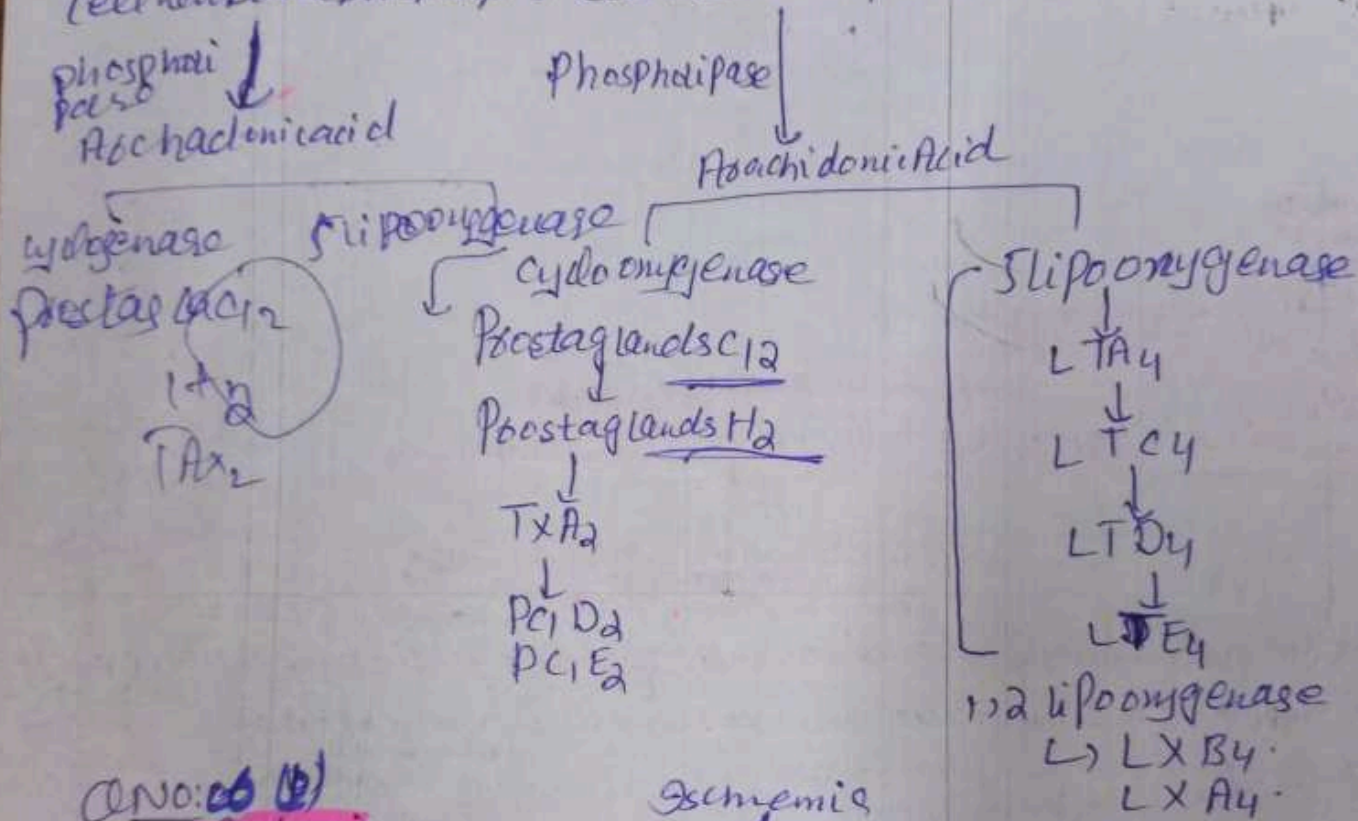 phospholi
pase
Arachadonicacid
cyclogenase
5lipooxygenase
TAx2
Phospholipase
Arachidonic Acid
cyclooxygenase
Prostaglands G2
Prostaglands H2
TxA2
PG D2
PG E2
5lipooxygenase
LTA4
LTC4
LTD4
LTE4
12 lipooxygenase
LXB4.
LXA4.
QNO:06 (b)
Ischemia